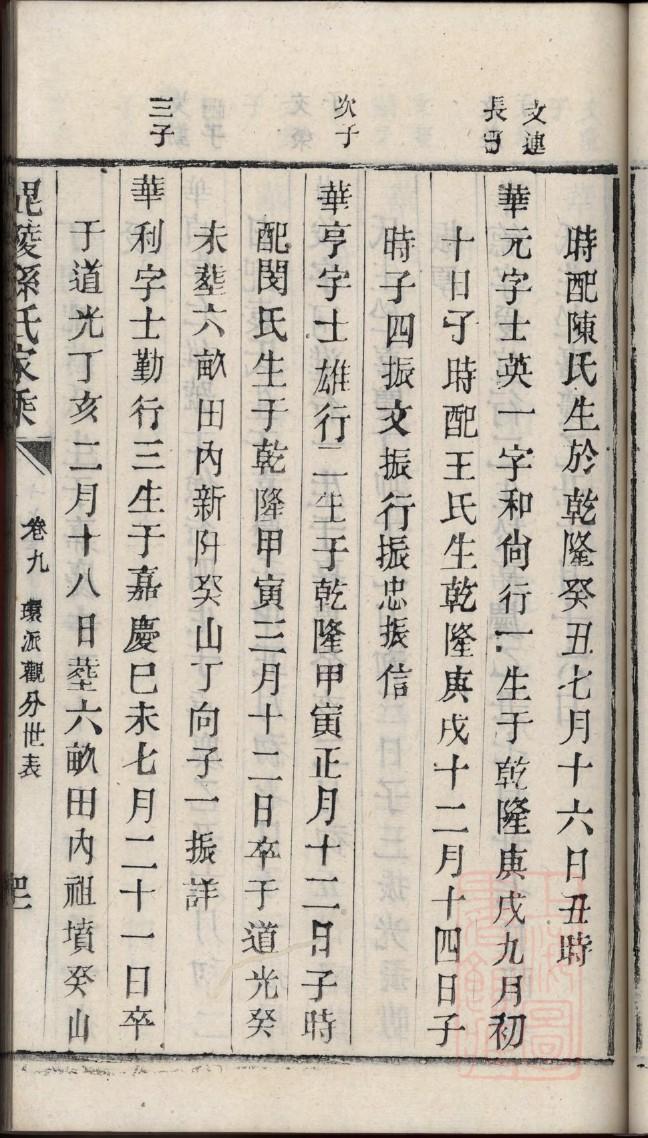 時配陳氏生於乾隆癸丑七月十六日丑時
文連
長子
華元字士英一字和尙行一生于乾隆庚戌九月初
十日子時配王氏生乾隆庚戌十二月十四日子
時子四振文振行振忠振信
次子
華亨字士雄行二生于乾隆甲寅正月十二日子時
配閔氏生于乾隆甲寅三月十二日卒于道光癸
未塟六畝田內新阡癸山丁向子一振詳
三子
華利字士勤行三生于嘉慶巳未七月二十一日卒
于道光丁亥二月十八日塟六畝田內祖墳癸山
毘陵孫氏家乘
卷九
環派觀分世表